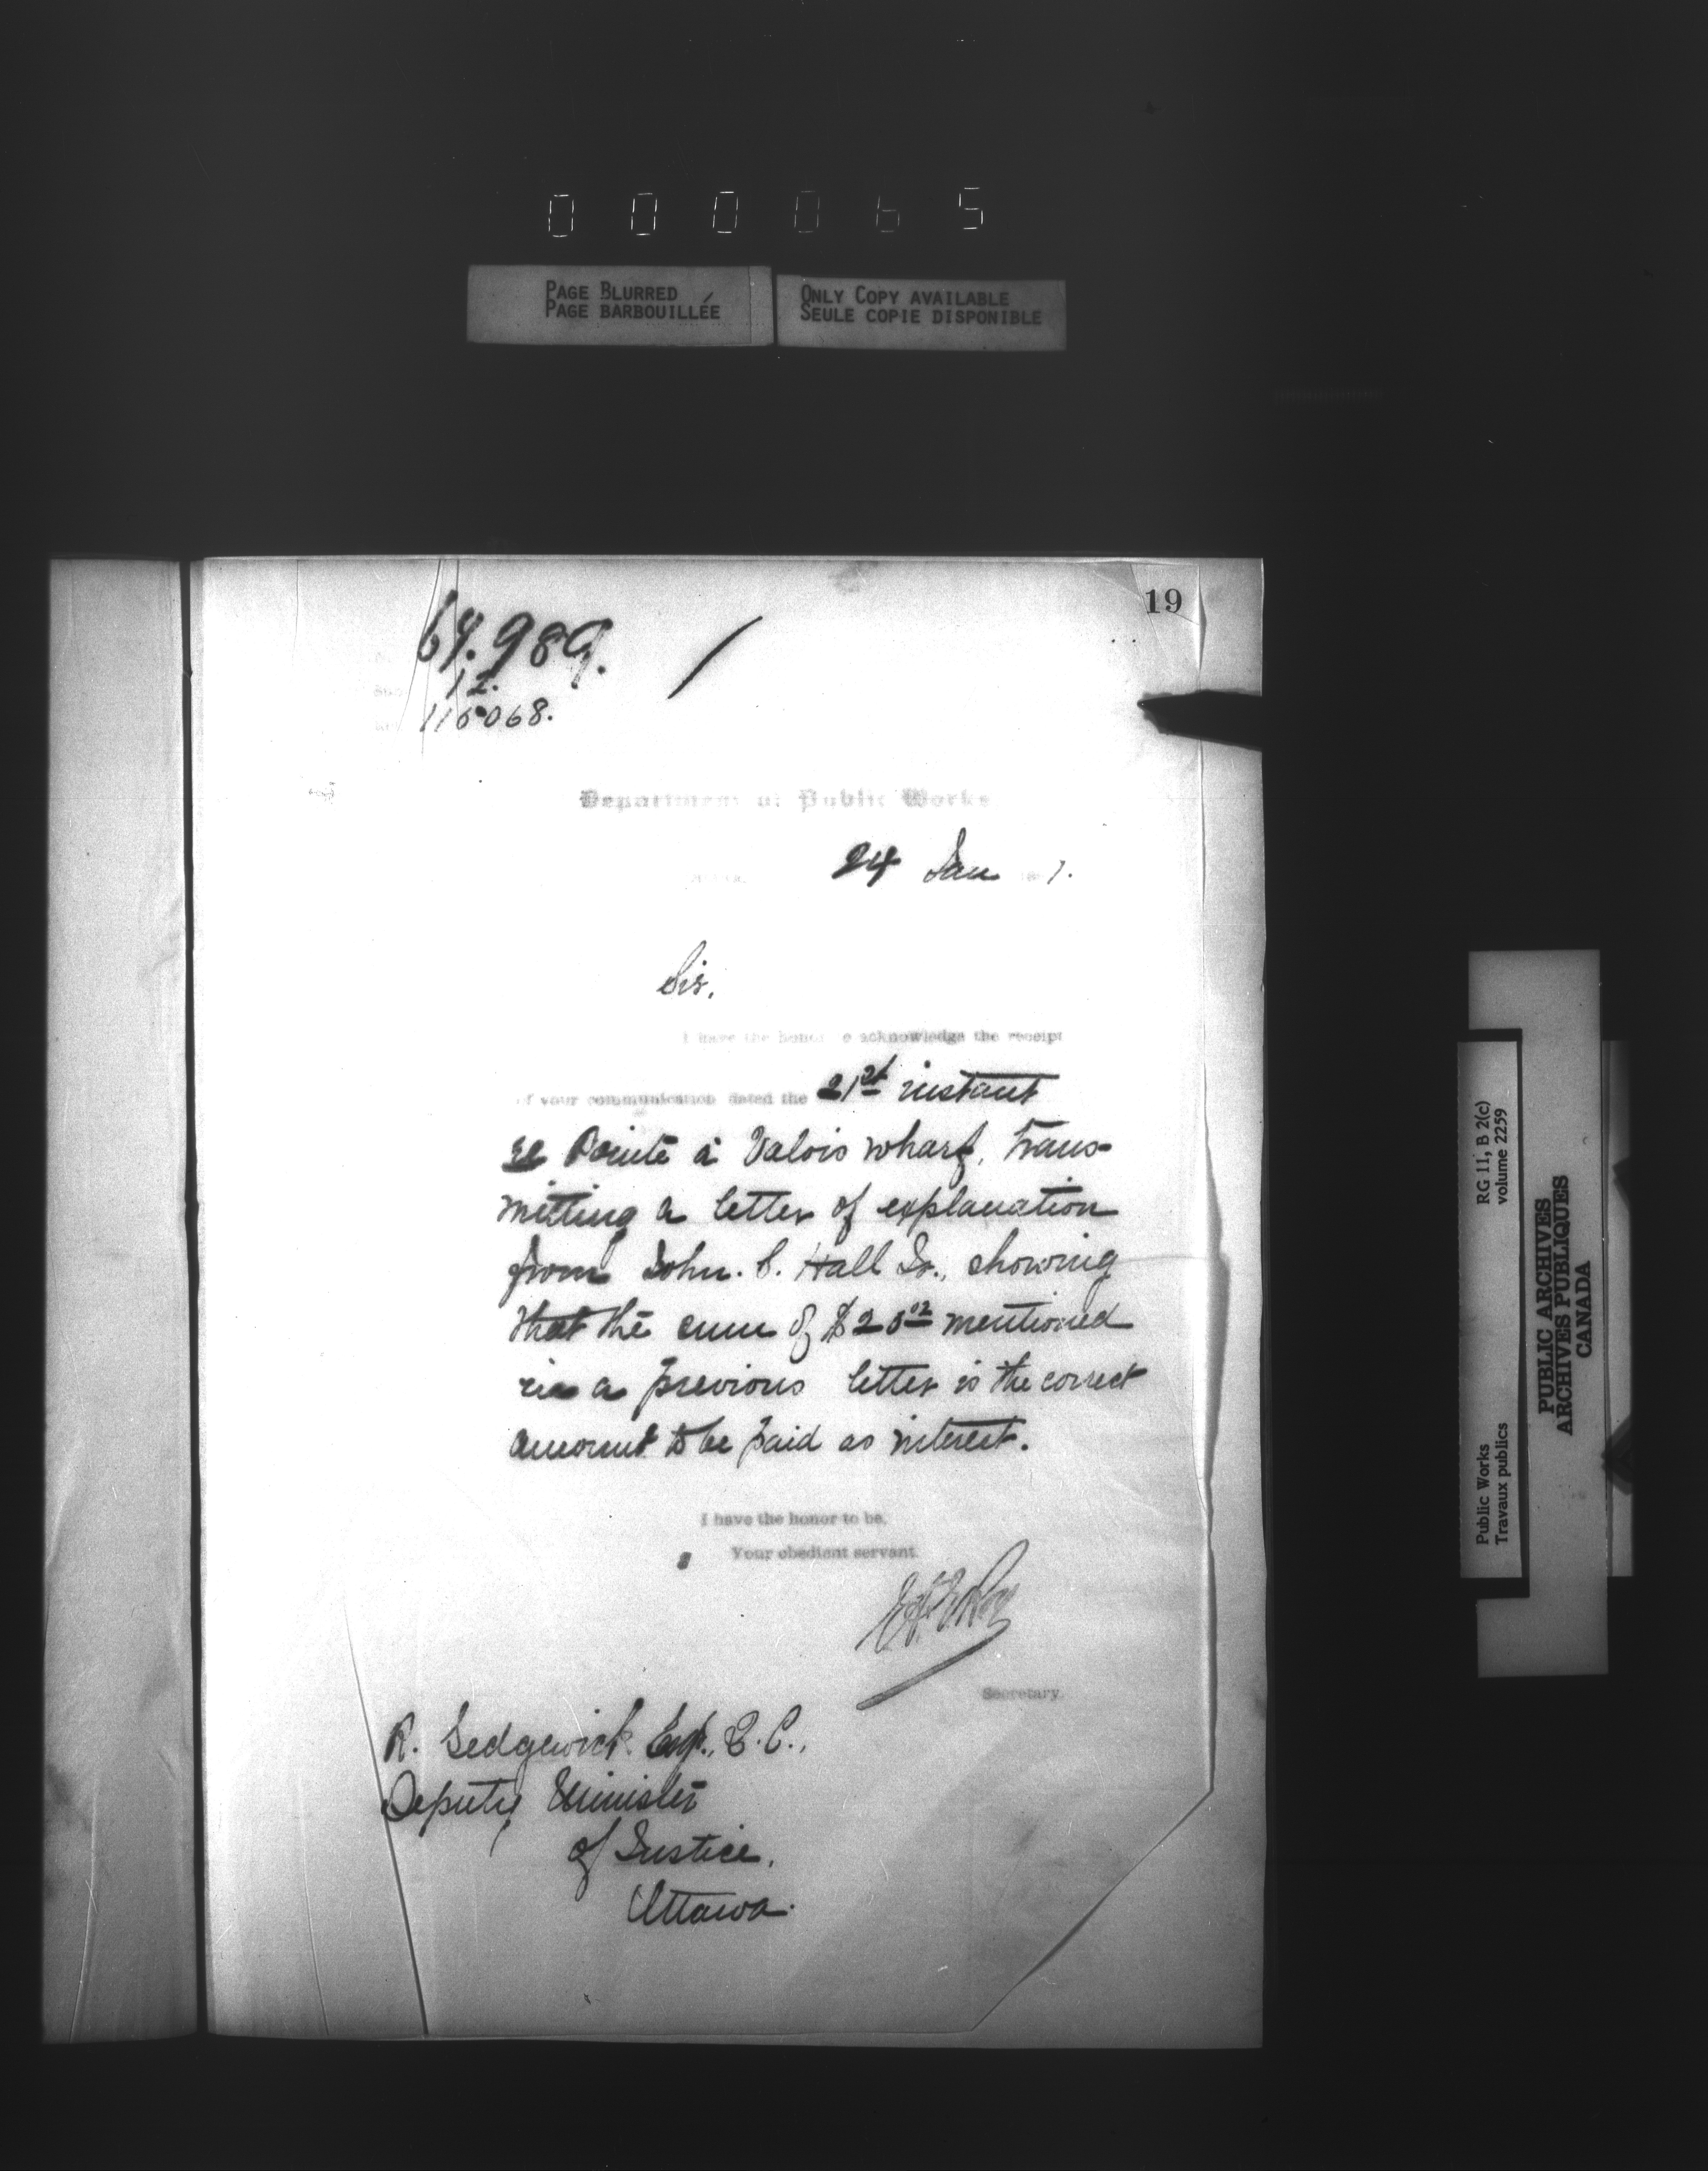 000065
PAGE BLURRED
PAGE BARBOUILLÉE
ONLY COPY AVAILABLE
SEULE COPIE DISPONIBLE
19
64.989.
12.
115068.
Department of Public Works
24 Jan 1.
Sir,
I have the honor to acknowledge the receipt
of your communication dated the 21st instant
re Pointe à Valois wharf, trans-
mitting a letter of explanation
from John. C. Hall Jr., showing
that the sum of $20 02 mentioned
in a previous letter is the correct
amount to be paid as interest.
I have the honor to be,
Your obedient servant.
Secretary.
R. Sedgewick Esqr., Q.C.,
Deputy Minister
of Justice.
Ottawa.
Public Works
Travaux publics
RG 11, B 2(c)
volume 2259
PUBLIC ARCHIVES
ARCHIVES PUBLIQUES
CANADA